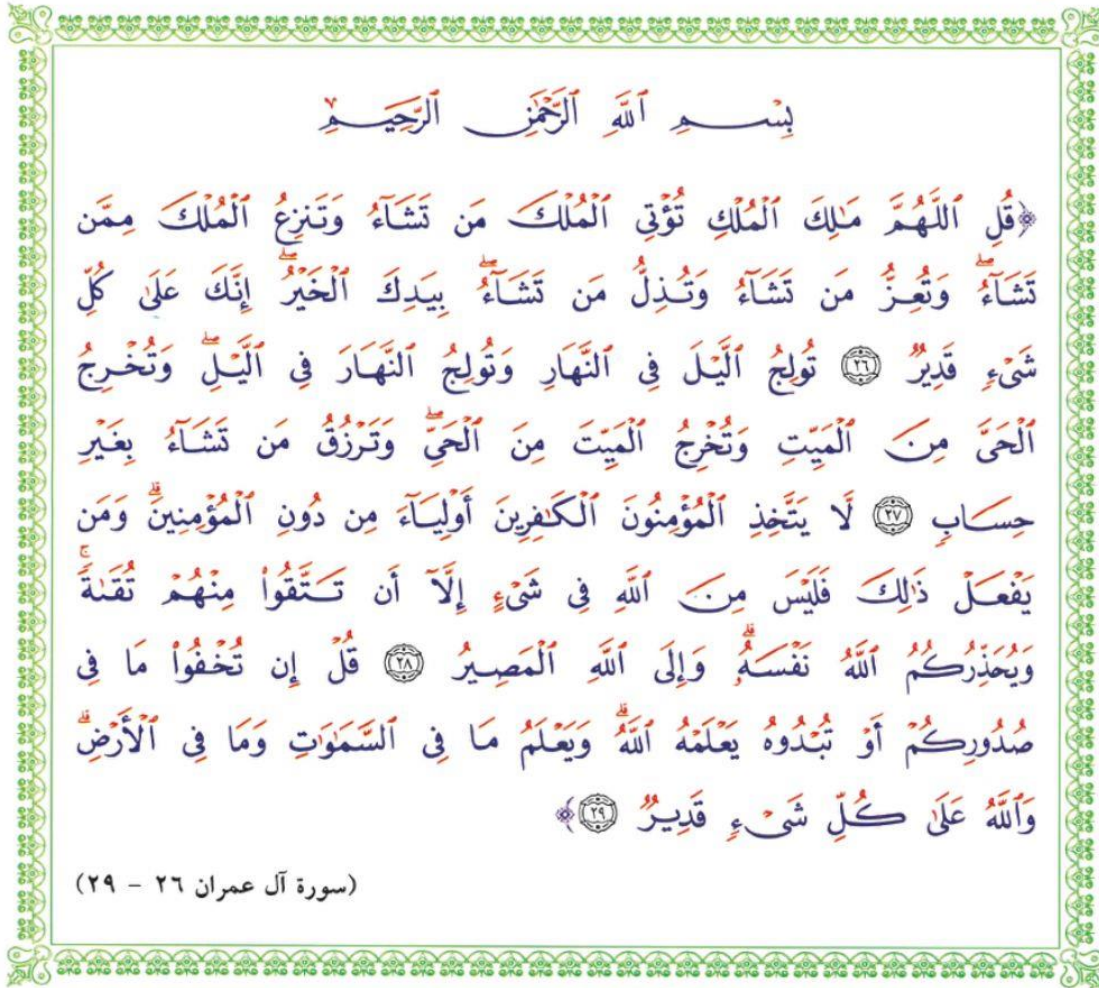 بِسْمِ ٱللَّهِ ٱلرَّحْمَٰنِ ٱلرَّحِيمِ
﴿قُلِ ٱللَّهُمَّ مَٰلِكَ ٱلْمُلْكِ تُؤْتِى ٱلْمُلْكَ مَن تَشَآءُ وَتَنزِعُ ٱلْمُلْكَ مِمَّن
تَشَآءُۖ وَتُعِزُّ مَن تَشَآءُ وَتُذِلُّ مَن تَشَآءُۖ بِيَدِكَ ٱلْخَيْرُۖ إِنَّكَ عَلَىٰ كُلِّ
شَىْءٍ قَدِيرٌ ٢٦ تُولِجُ ٱلَّيْلَ فِى ٱلنَّهَارِ وَتُولِجُ ٱلنَّهَارَ فِى ٱلَّيْلِۖ وَتُخْرِجُ
ٱلْحَىَّ مِنَ ٱلْمَيِّتِ وَتُخْرِجُ ٱلْمَيِّتَ مِنَ ٱلْحَىِّۖ وَتَرْزُقُ مَن تَشَآءُ بِغَيْرِ
حِسَابٍ ٢٧ لَّا يَتَّخِذِ ٱلْمُؤْمِنُونَ ٱلْكَٰفِرِينَ أَوْلِيَآءَ مِن دُونِ ٱلْمُؤْمِنِينَۖ وَمَن
يَفْعَلْ ذَٰلِكَ فَلَيْسَ مِنَ ٱللَّهِ فِى شَىْءٍ إِلَّآ أَن تَتَّقُوا۟ مِنْهُمْ تُقَىٰةًۗ
وَيُحَذِّرُكُمُ ٱللَّهُ نَفْسَهُۥۗ وَإِلَى ٱللَّهِ ٱلْمَصِيرُ ٢٨ قُلْ إِن تُخْفُوا۟ مَا فِى
صُدُورِكُمْ أَوْ تُبْدُوهُ يَعْلَمْهُ ٱللَّهُۗ وَيَعْلَمُ مَا فِى ٱلسَّمَٰوَٰتِ وَمَا فِى ٱلْأَرْضِۗ
وَٱللَّهُ عَلَىٰ كُلِّ شَىْءٍ قَدِيرٌ ٢٩﴾
(سورة آل عمران ٢٦ - ٢٩)